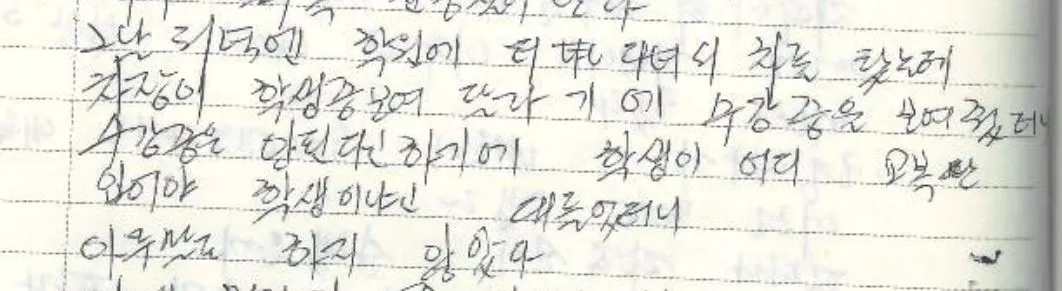 그날 저녁엔 학원에 더 다녀서 차를 탔는데
차장이 학생증 보여 달라 기에 수강증을 보여줬더니
수강증은 안된다인 하기에 학생이 어디 교복만
입어야 학생이냐인 대들었더니
아무말도 하지 않았다